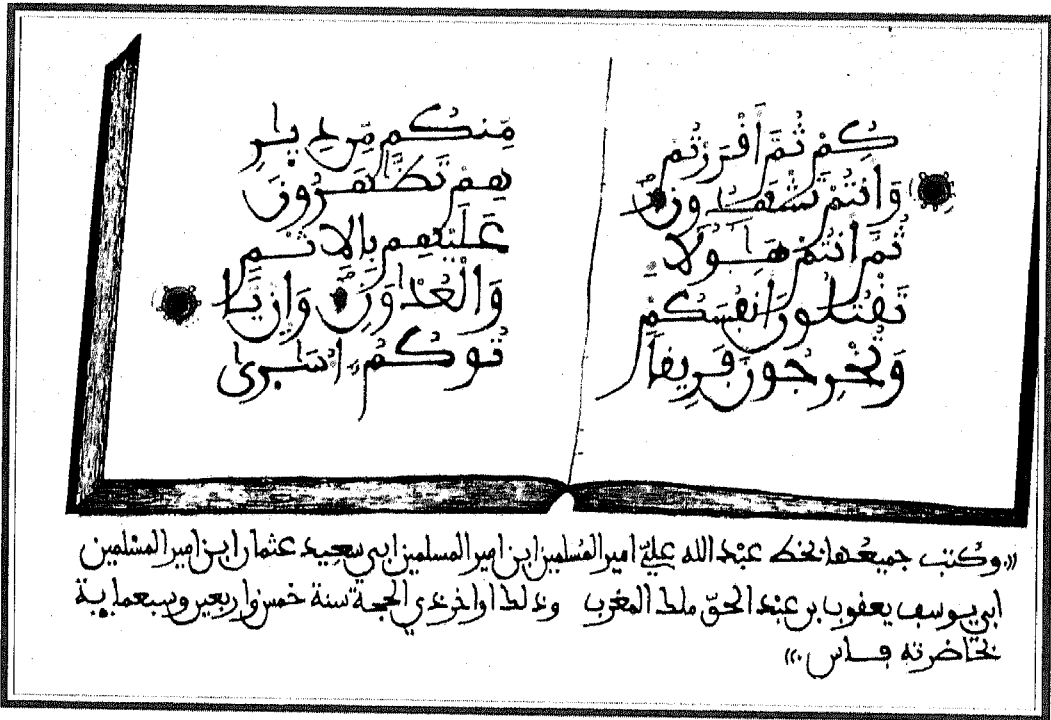 كُمْ ثُمَّ أَقْرَرْتُمْ
وَأَنتُمْ تَشْهَدُونَ
ثُمَّ أَنتُمْ هَـٰؤُلَاءِ
تَقْتُلُونَ أَنفُسَكُمْ
وَتُخْرِجُونَ فَرِيقًا
مِّنكُم مِّن دِيَـٰرِ
هِمْ تَظَّـٰهَرُونَ
عَلَيْهِم بِالْإِثْمِ
وَالْعُدْوَٰنِ وَإِن يَا
تُوكُمُ أُسَـٰرَىٰ
((.وكتب جميعها بخط عبد الله عليّ امير المسلمين ابن امير المسلمين ابي سعيد عثمان ابن امير المسلمين
ابي يوسف يعقوب بن عبد الحقّ ملك المغرب وذلك اواخر ذي الحجة سنة خمس واربعين وسبعماية
بحاضرته فاس.))